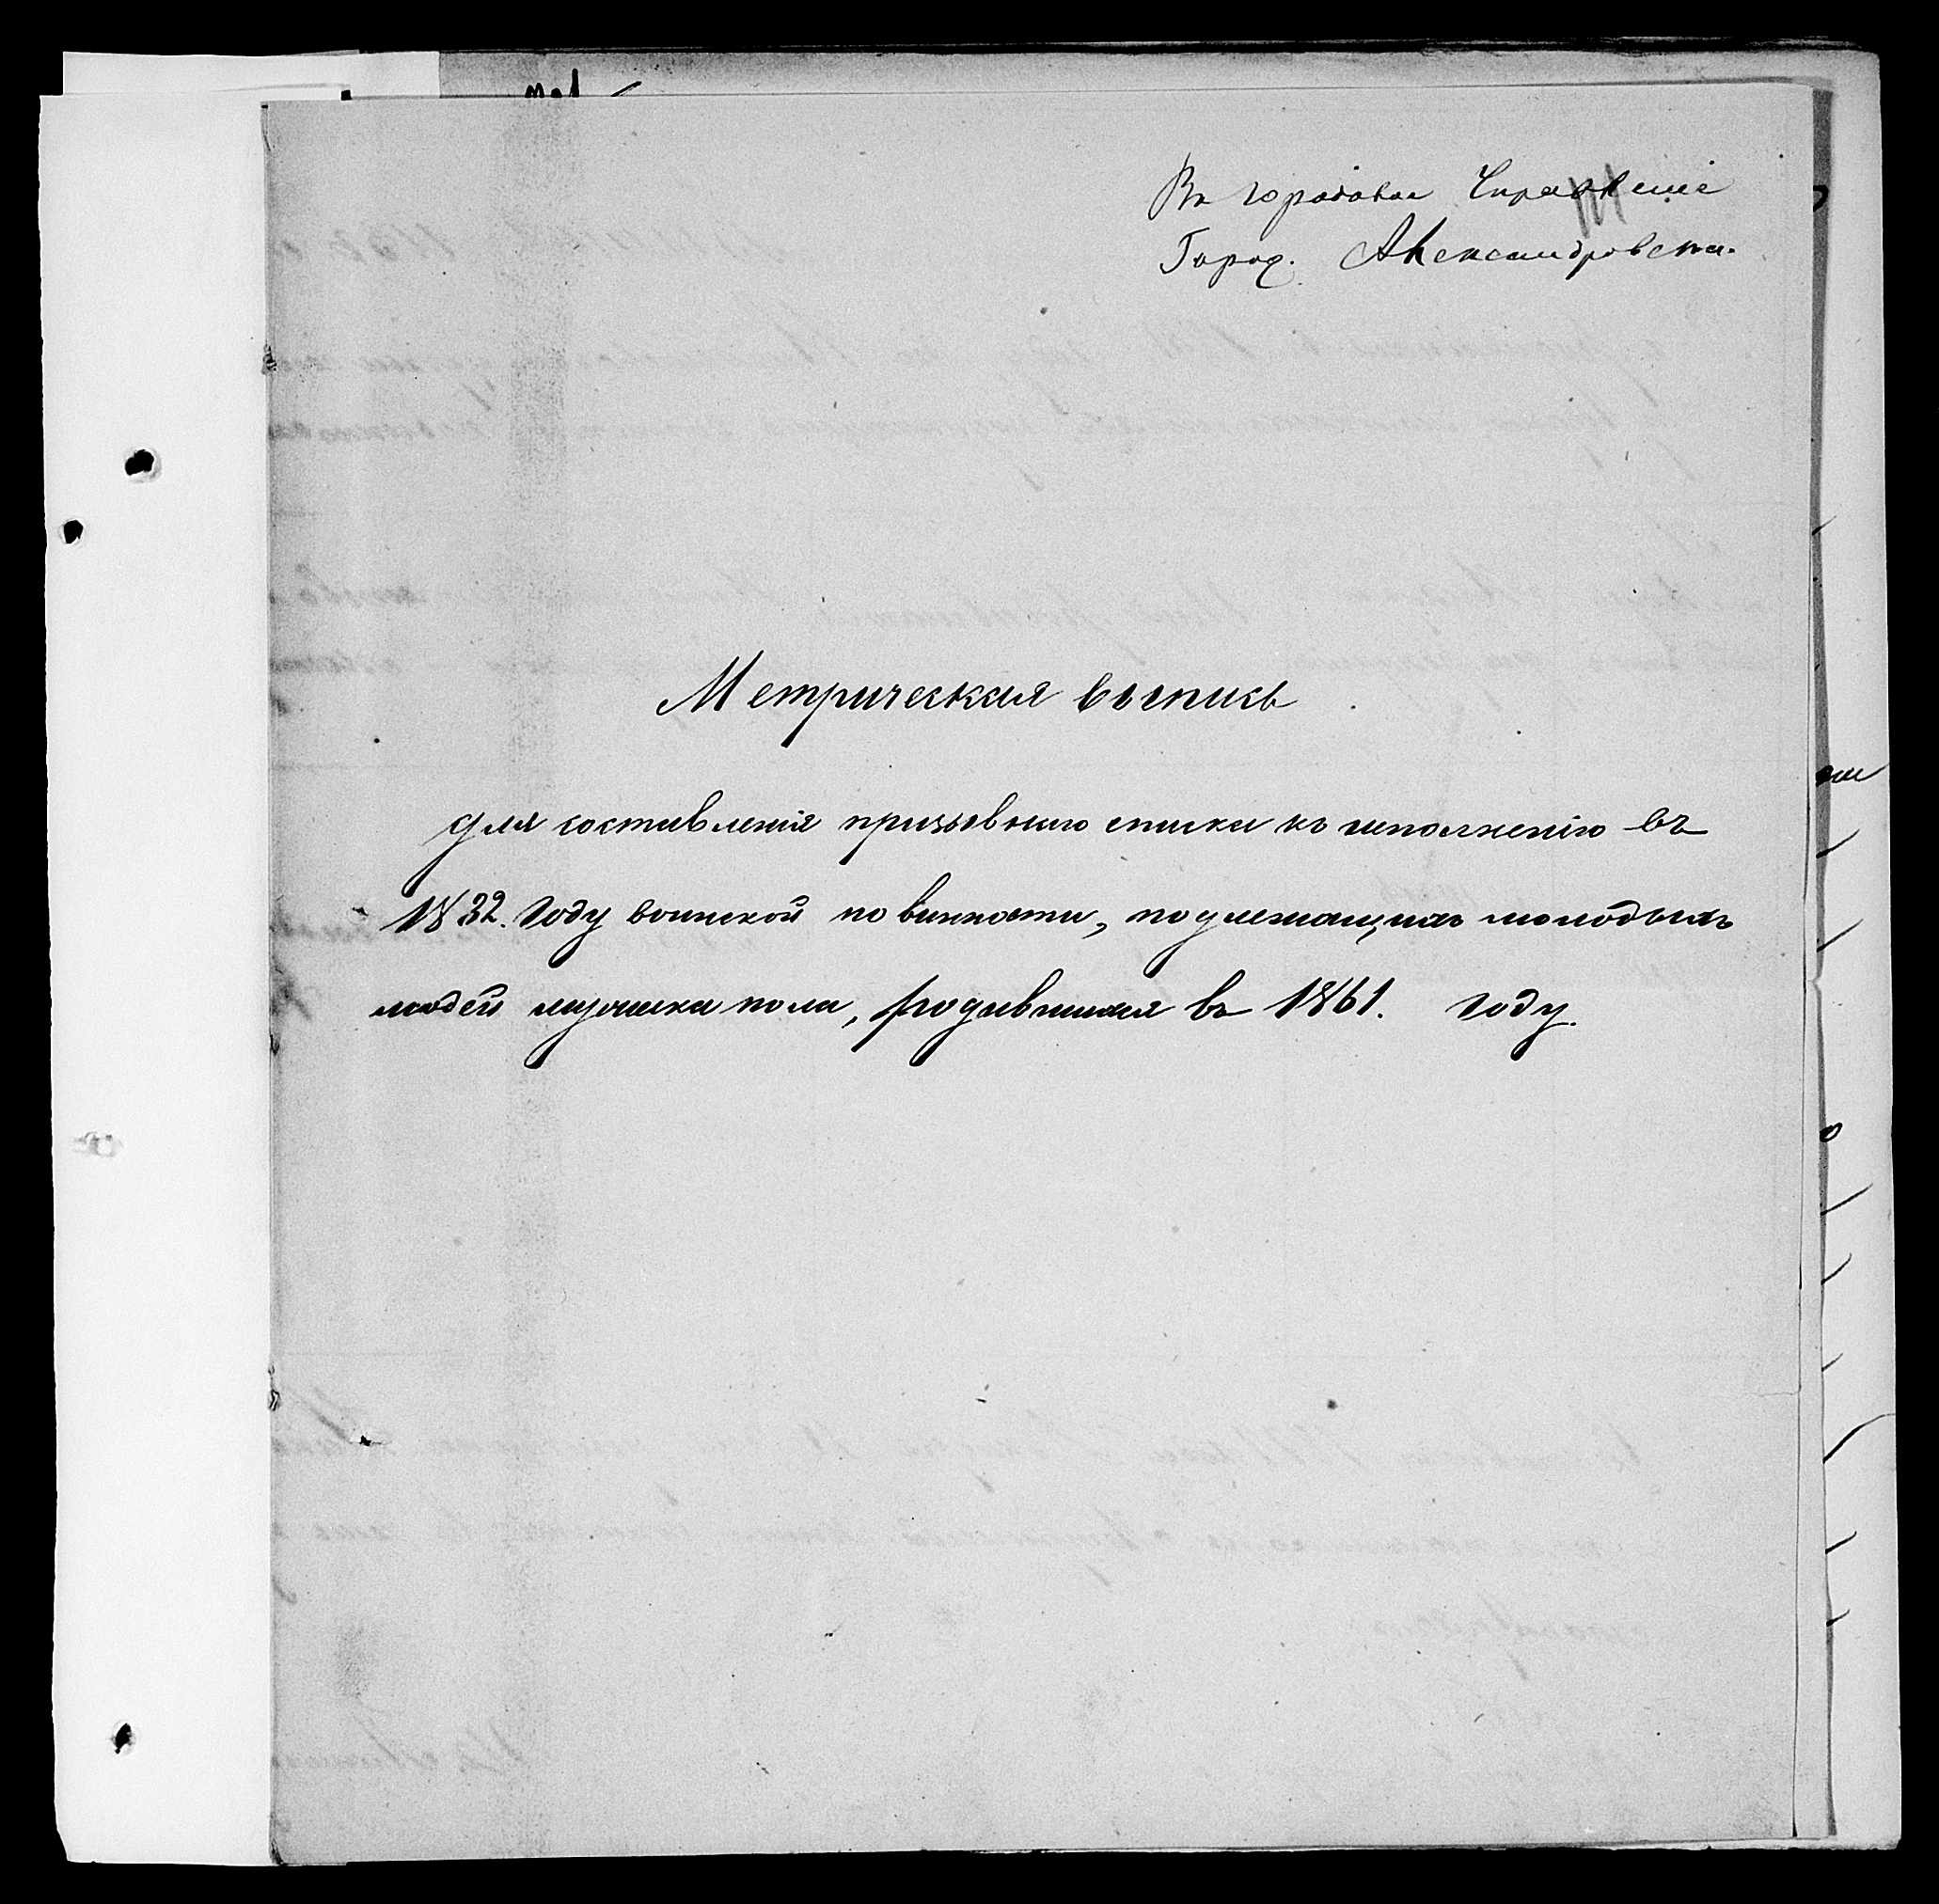 Въ городовое Управленiе
Город. Александровска.
Метрическая выпись
для составленiя призывнаго списка къ исполненiю въ
1832. году воинской повинности, подлежащихъ молодыхъ
людей мужска пола, родившихся въ 1861. году.